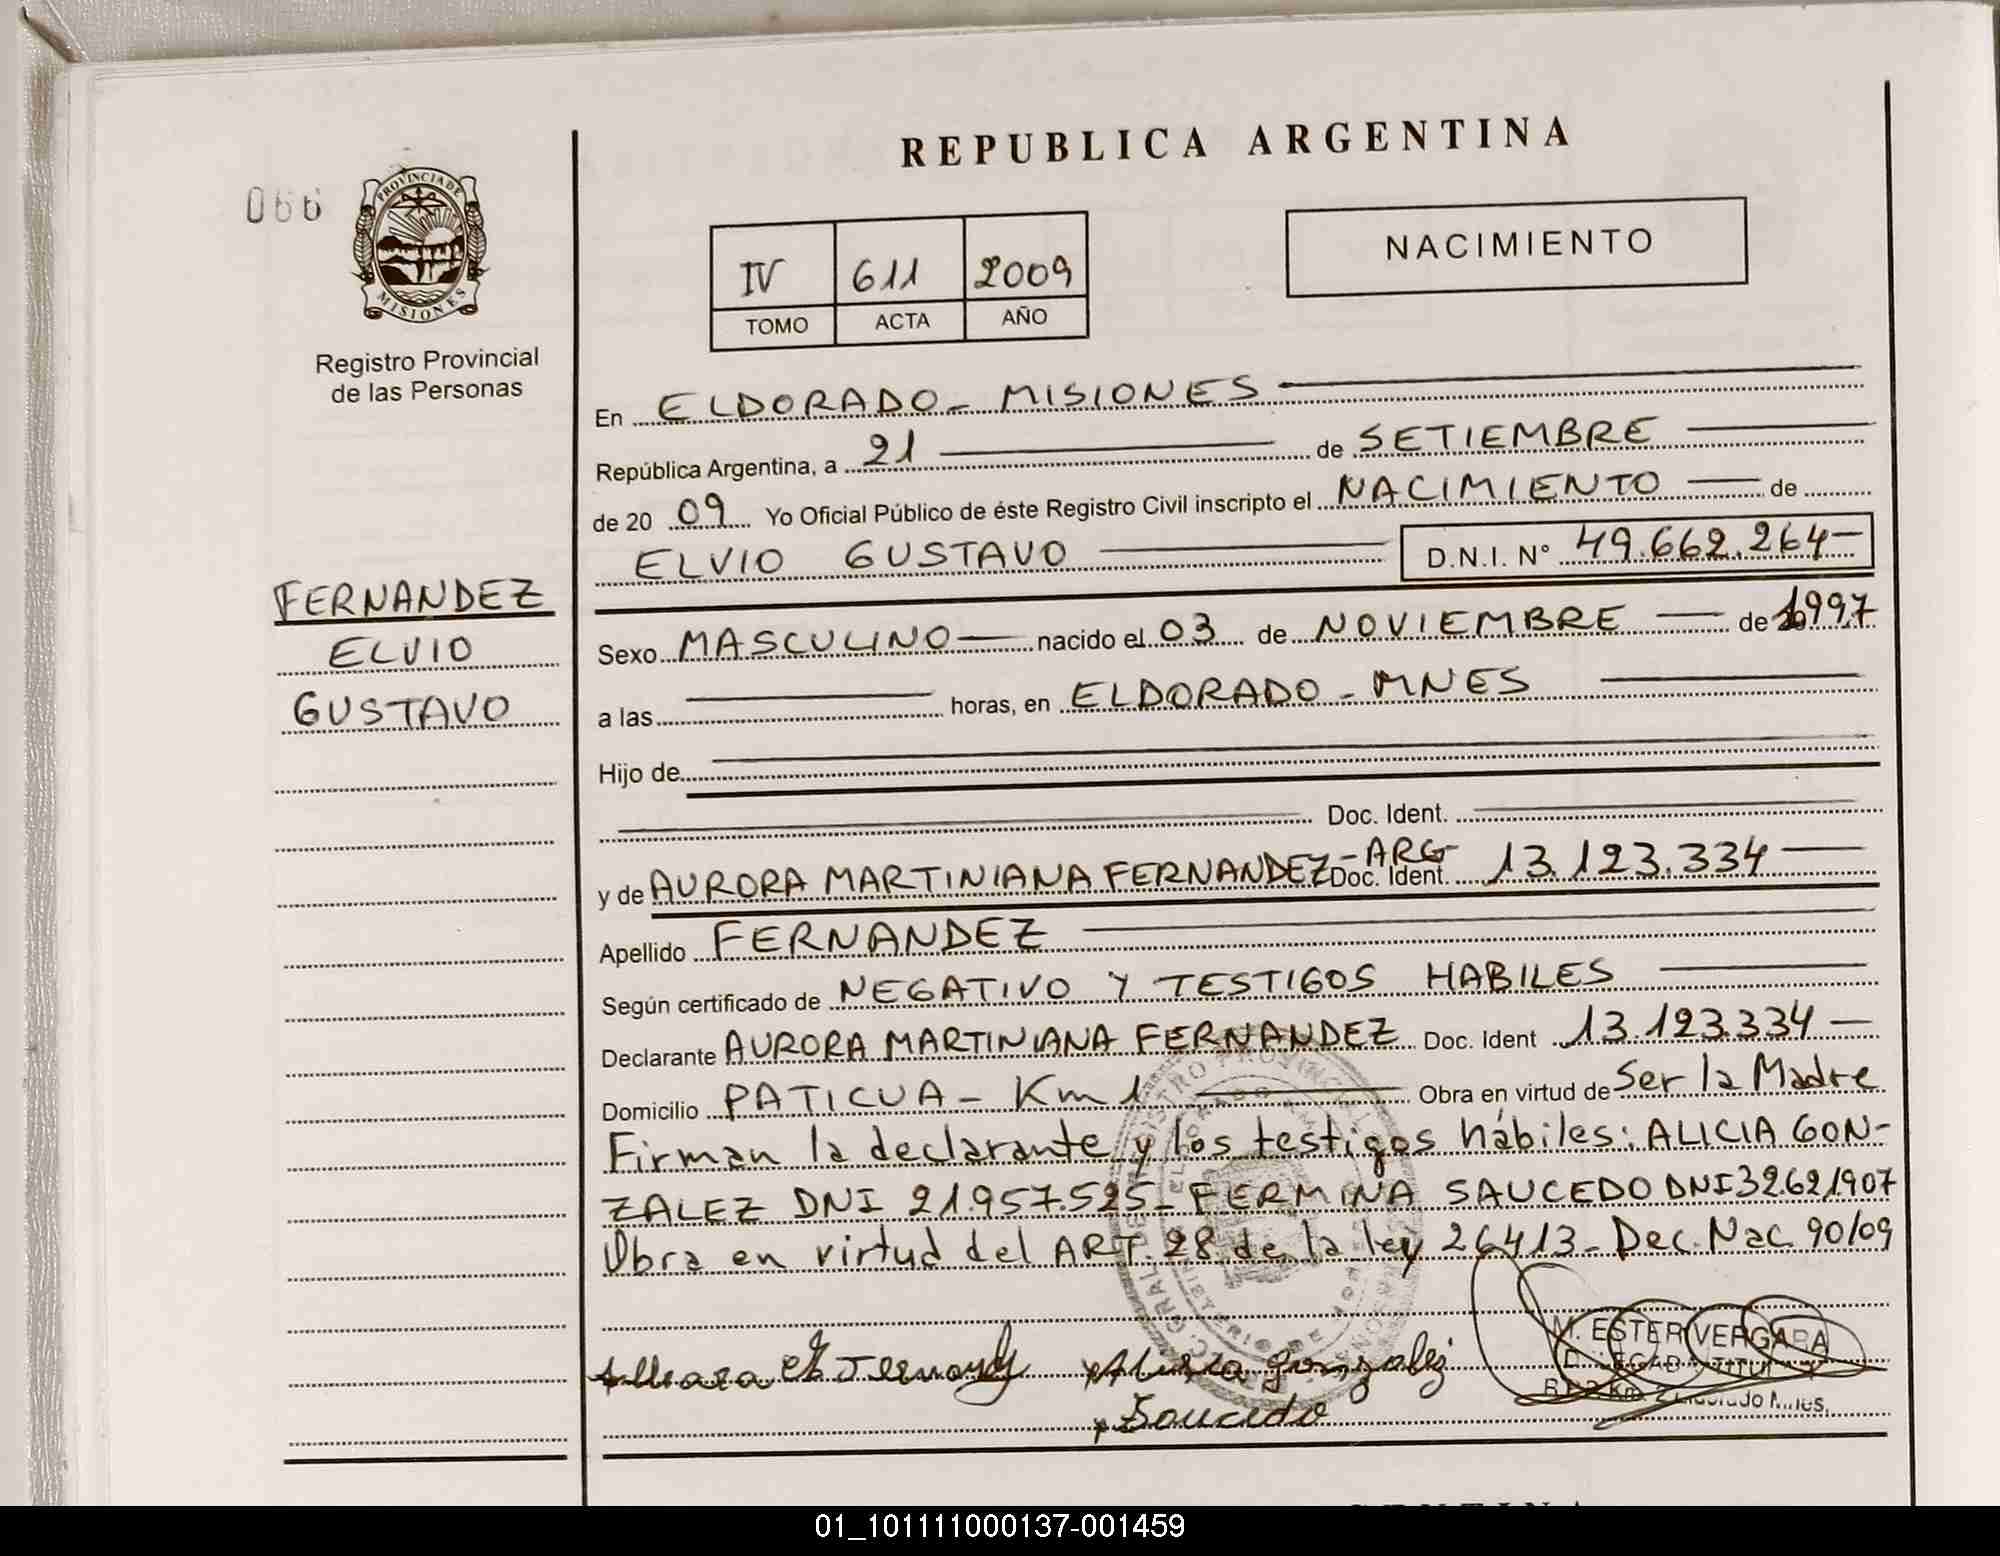 REPUBLICA ARGENTINA
066
PROVINCIA DE
MISIONES
Registro Provincial
de las Personas
NACIMIENTO
IV 611 2009
TOMO ACTA AÑO
En ELDORADO - MISIONES
República Argentina, a 21 de SETIEMBRE
de 20 09 Yo Oficial Público de éste Registro Civil inscripto el NACIMIENTO de
ELVIO GUSTAVO D.N.I. N° 49.662.264-
FERNANDEZ
ELVIO
GUSTAVO
Sexo MASCULINO nacido el 03 de NOVIEMBRE de 1997
a las horas, en ELDORADO - MNES
Hijo de
Doc. Ident.
y de AURORA MARTINIANA FERNANDEZ - ARG Doc. Ident. 13.123.334
Apellido FERNANDEZ
Según certificado de NEGATIVO Y TESTIGOS HABILES
Declarante AURORA MARTINIANA FERNANDEZ Doc. Ident 13.123.334
Domicilio PATICUA - Km 1 Obra en virtud de Ser la Madre
Firman la declarante y los testigos hábiles: ALICIA GON-
ZALEZ DNI 21.957.525- FERMINA SAUCEDO DNI 32.621.907
Obra en virtud del ART. 28 de la ley 26413- Dec. Nac 90/09
M. ESTER VERGARA
Alicia gonzalez
Saucedo
01_101111000137-001459